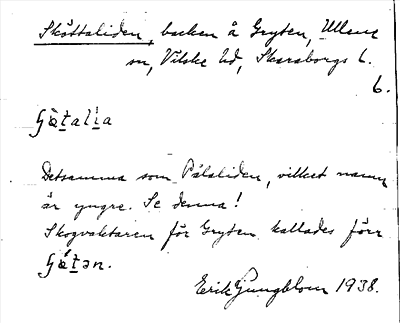 Sköttaliden, backen å Gryten, Ullene
sn, Vilske hd, Skaraborgs l.
6.
Detsamma som Pålaliden, vilket namn
är yngre. Se denna!
Skogvaktaren för Gryten kallades förr
Erik Ljungblom 1938.